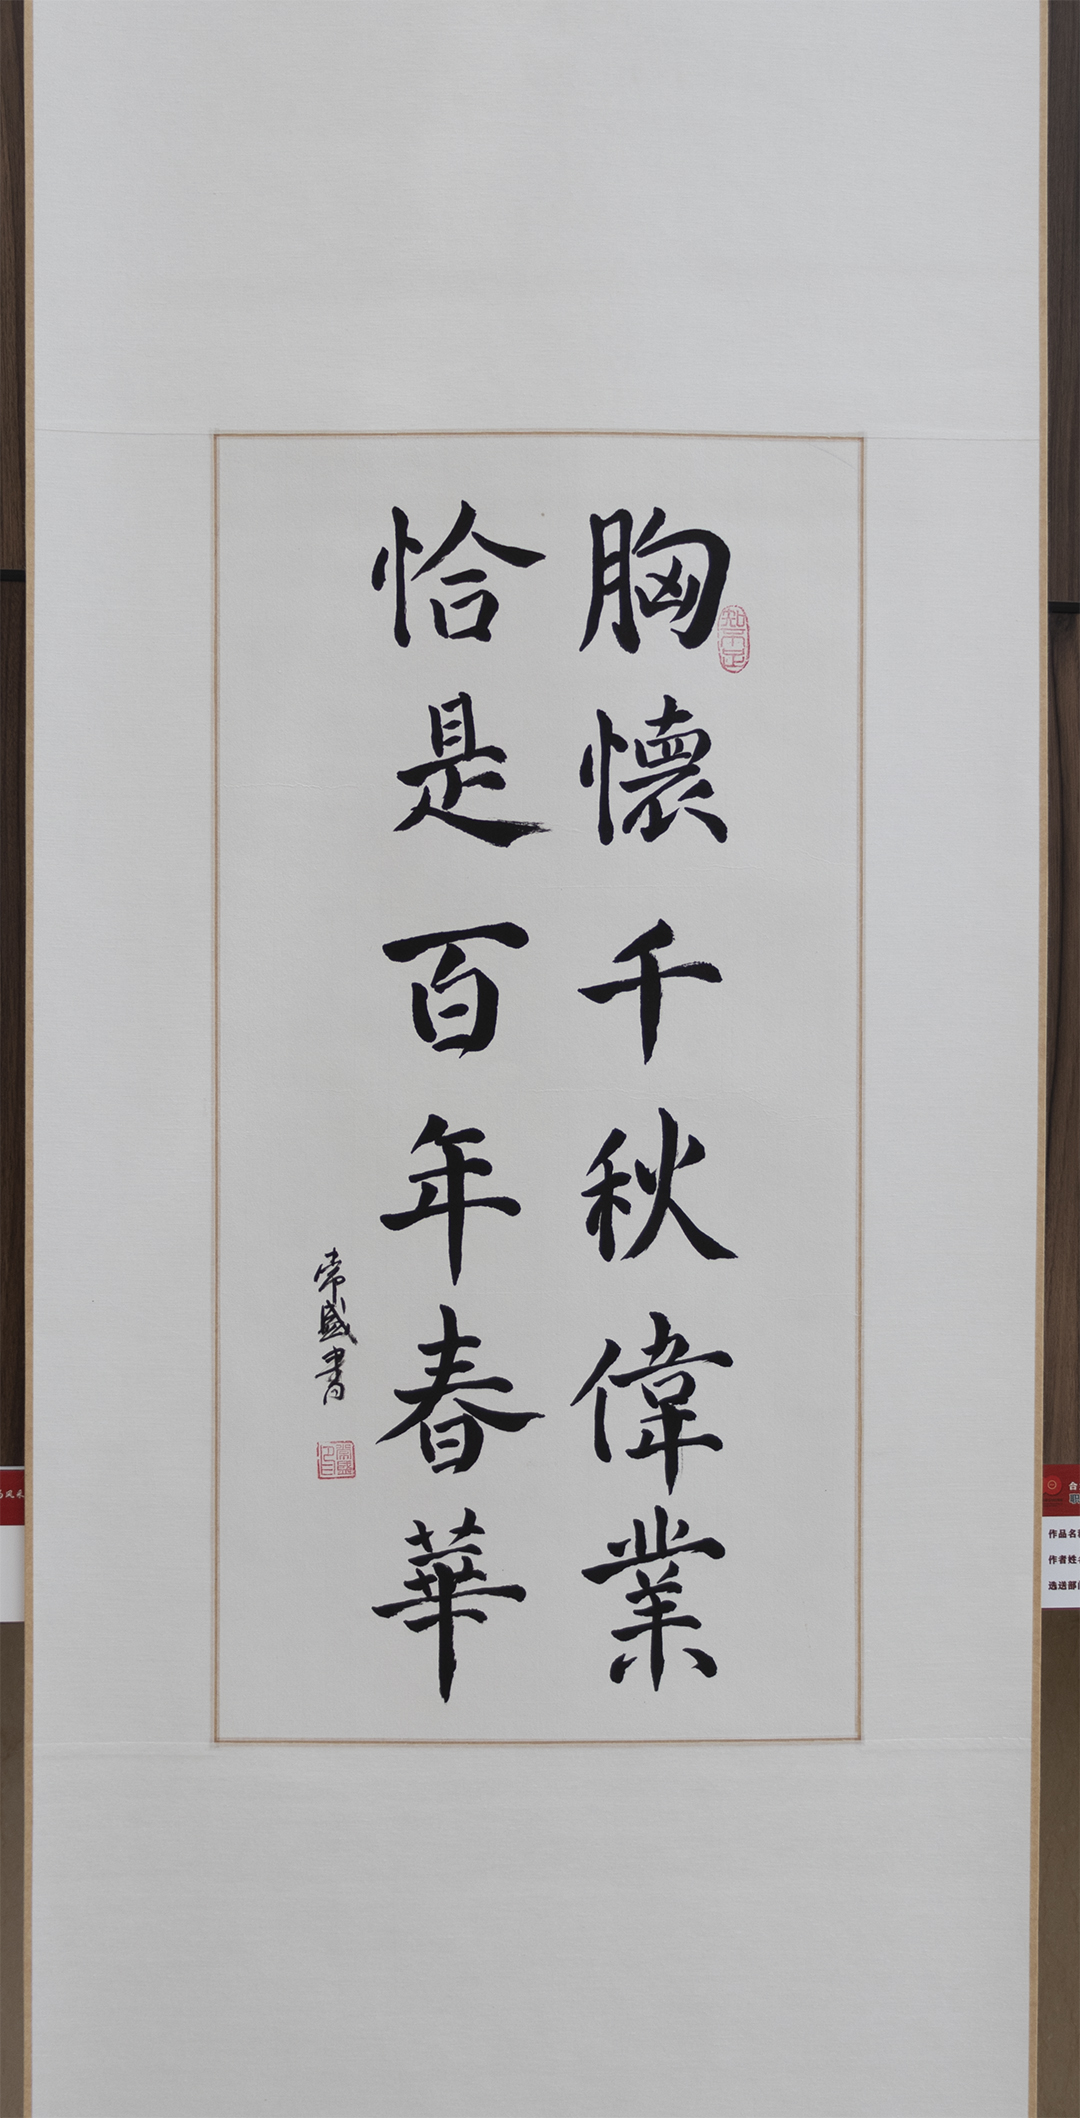 胸懷千秋偉業
恰是百年春華
常盛書
知不足
作品名
作者姓
选送部